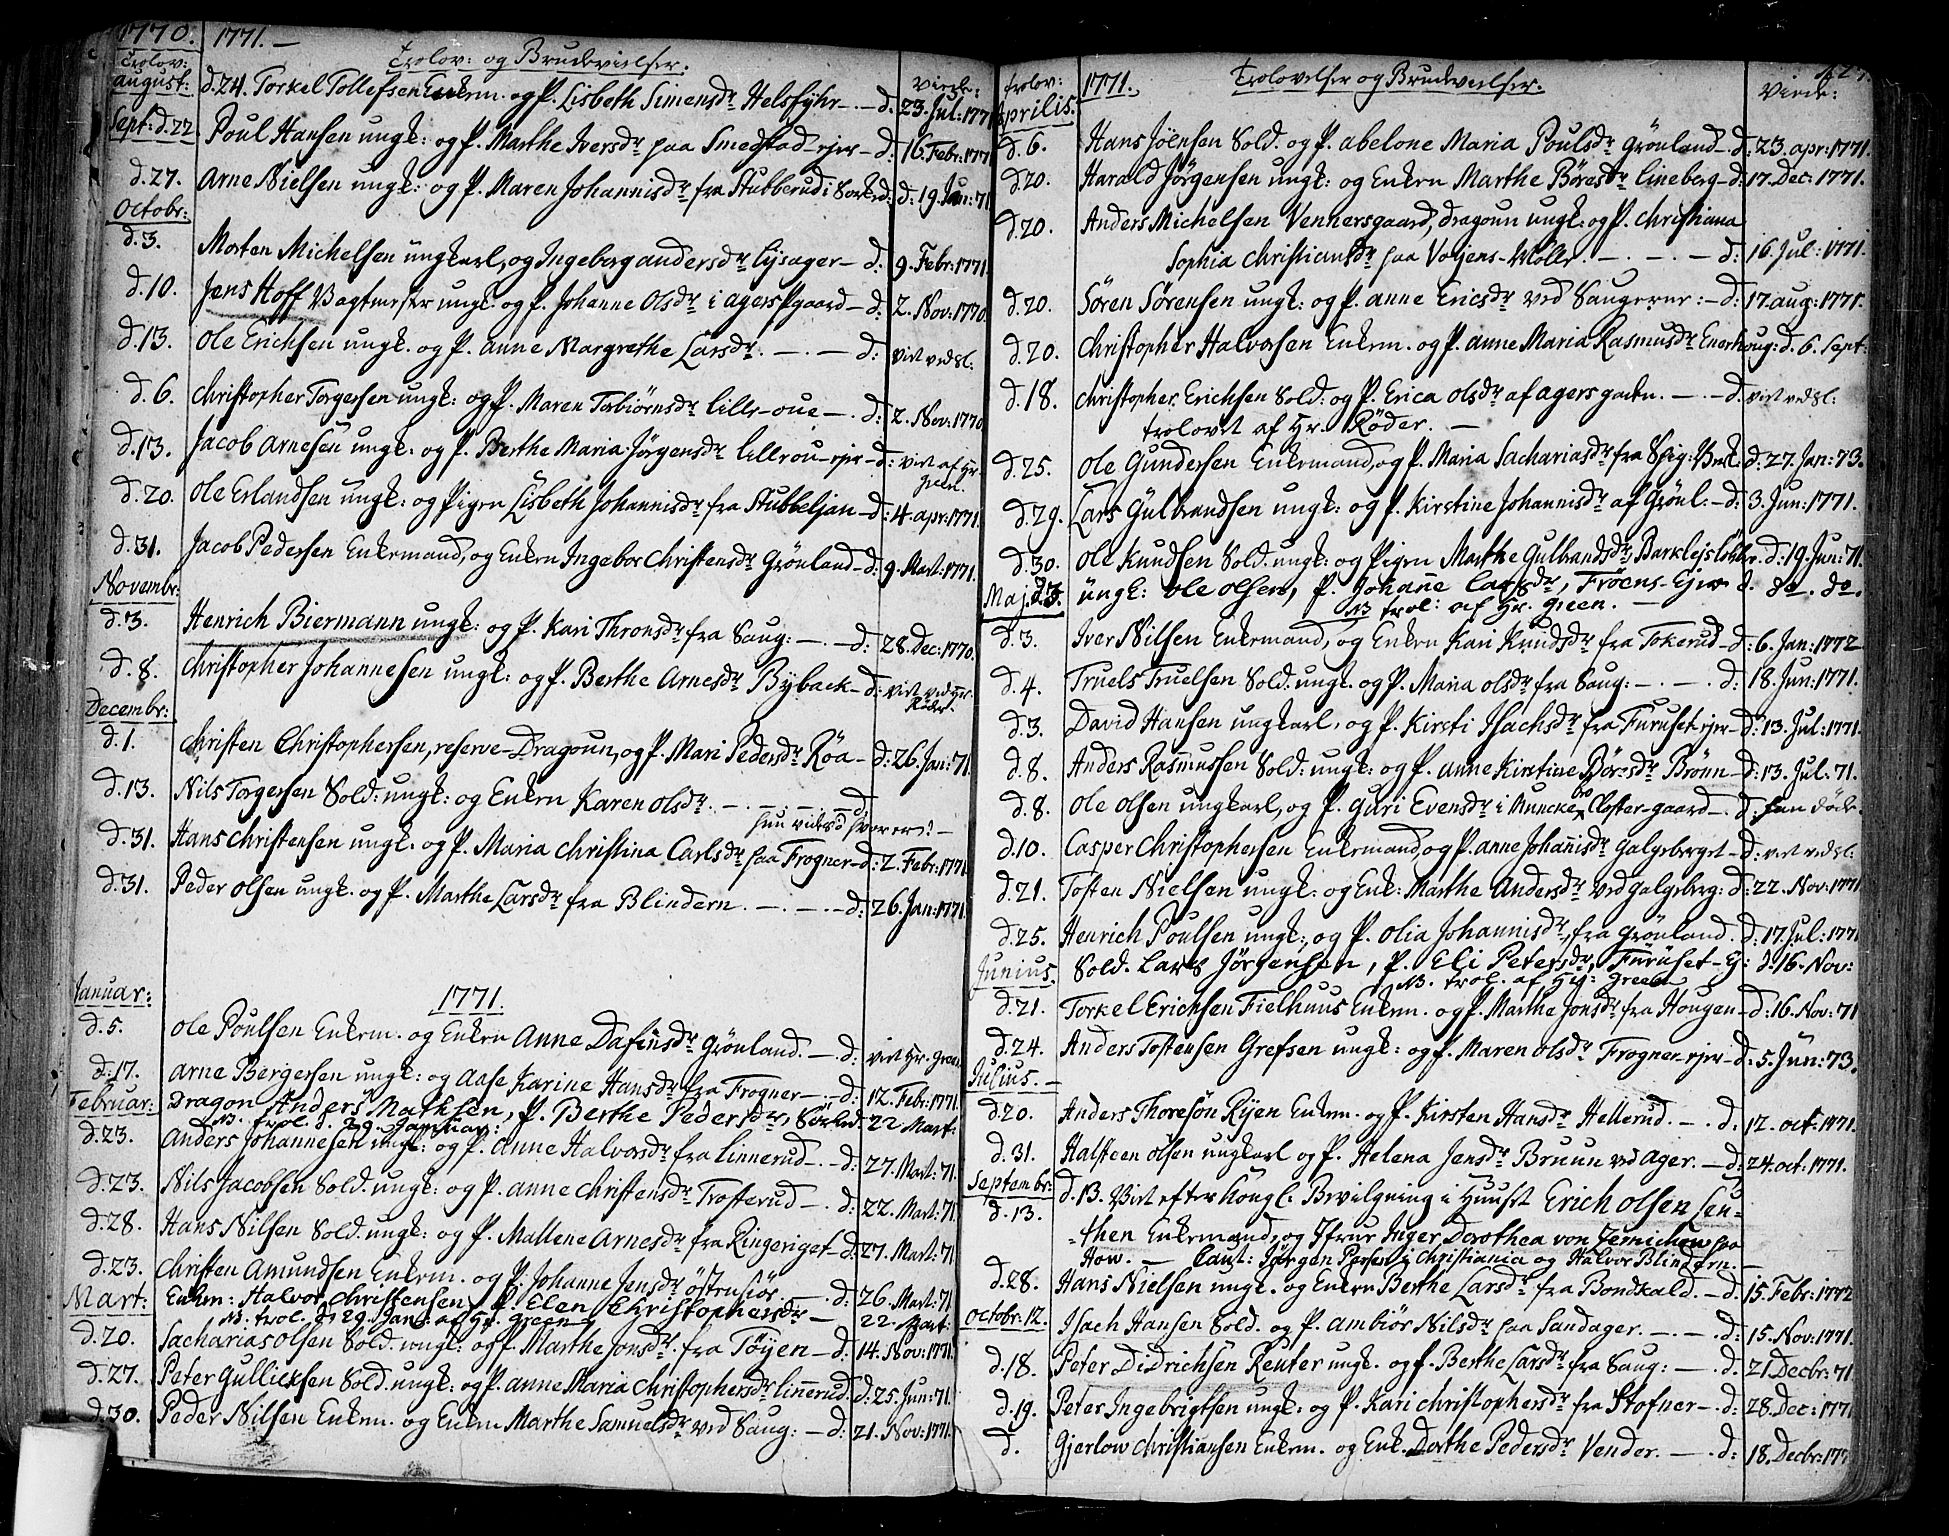 1770. 1771. –
Trolov: og Brudevielser. Viede:
Trolov:
august: d.24. Torkel Tollefsen Enkem. og P. Lisbeth Simensdr Helsfyhr – d: 23. Jul: 1771
Sept: d.22 Poul Hansen ungk: og P. Marthe Iversdr paa Smedstad-ejer – d: 16. Febr: 1771
d.27. Arne Nielsen ungk: og P. Maren Johannisdr fra Stubberud i Sørked: d: 19. Jun: 71
Octobr:
d.3. Morten Michelsen ungkarl, og Ingeborg andersdr lysager – d: 9. Febr: 1771.
d.10. Jens Hoff Vagtmester ungk: og P. Johanne Olsdr i agersgaard – d: 2. Nov: 1770.
d.13. Ole Erichsen ungk. og P. anne Margrethe Larsdr. – . – d: viet vedsl:
d.6. Christopher Torgersen ungk: og P. Maren Torbiørnsdr lille-oue – . d: 2. Nov: 1770
d.13. Jacob Arnesen ungk. og P. Berthe Maria Jørgensdr lilleou-ejer – d: viet af Hr.
Green.
d.20. Ole Erlandsen ungk: og Pigen Lisbeth Johannisdr fra Stubbeljan – d: 4. apr: 1771.
d.31. Jacob Pedersen Enkemand, og Enken Ingebor Christensdr Grönland – d: 9. Mart: 1771.
Novembr:
d.3. Henrich Biermann ungk: og P. Kari Thronsdr fra Saug: – – d: 28. Dec: 1770.
d.8. Christopher Johannesen ungk: og P. Berthe Arnesdr Byback – d: viet ved Hr.
Röder.
Decembr:
d.1. Christen Christophersen, reserve-Dragoun, og P. Mari Pedersdr Røa – d: 26. Jan: 71.
d.13. Nils Torgersen Sold: ungk: og Enken Karen Olsdr. – . – . – d
d.31. Hans Christensen ungk. og P. Maria Christina Carlsdr paa Frogner – d: 2. Febr: 1771
d.31. Peder Olsen ungk. og P. Marthe Larsdr fra Blindern. – . – . – d: 26. Jan: 1771.
1771.
Januar:
d.5. Ole Poulsen Enkem. og Enken Anne Dafinsdr Grönland. – . d: viet Hr. Green
d:17. Arne Bergersen ungk: og Aase Karine Hansdr fra Frogner – . – d: 12. Febr: 1771.
Februar: Dragon Anders Mathsen, P. Berthe Pedersdr, Sørked. 22 Mart:
NB. trol. d. 29. Januar:
d.23. Anders Johannesen ungk: og P. Anne Halvorsdr fra Linnerud – . – d: 27. Mart: 71.
d.23. Nils Jacobsen Sold. ungk: og P. anne Christensdr Trosterud – . d: 22. Mart: 71.
d.28. Hans Nilsen Sold. ungk: og P. Mallene Arnesdr fra Ringeriget – d: 27. Mart: 71
d.23. Christen Amundsen Enkem. og P. Johanne Jensdr östensiör. – d: 26. Mart: 71
Mart: Enkm: Halvor Christensen, P. Elen Christophersdr – 22. Mart
NB. trol. d. 29. Jan: af Hr. Green
d.20. Sacharias Olsen Sold. ungk: og P. Marthe Jonsdr. fra Töyen – d: 14. Nov: 1771.
d.27. Peter Gullicksen Sold. ungk: og P. anne Maria Christophersdr linnerud. d: 25. Jun: 71.
d.30. Peder Nilsen Enkem. og Enken Marthe Samuelsdr ved Saug: – d: 21. Nov: 1771.
Trolov: 1771. Trolovelser og Brudevielser. Viede:
Aprilis.
d.6. Hans Jöensen Sold. og P. abelone Maria Poulsdr Grönland – d: 23. apr: 1771.
d.20. Harald Jørgensen ungk: og Enken Marthe Børesdr lineberg – d: 17. Dec: 1771.
d.20. Anders Michelsen Vennersgaard, dragoun ungk: og P. Christiana
Sophia Christiansdr paa Vøyens-Mölle. – . – . – d: 16. Jul: 1771.
d.20. Sören Sörensen ungk: og P. anne Ericsdr ved Saugerne: – d: 17. aug: 1771.
d.20. Christopher Halvorsen Enkem. og P. anne Maria Rasmusdr Enerhoug: d. 6. Sept:
d.18. Christopher Erichsen Sold: og P. Erica Olsdr af agers gaden. – . – d: viet vedsl:
trolovet af Hr. Röder. –
d.25. Ole Gundersen Enkemand, og P. Maria Sachariasdr fra Spig: Bruk: d: 27. Jan: 73.
d.29. Lars Gulbrandsen ungk: og P. Kirstine Johannisdr af Grönl: – d: 3. Jun: 1771.
d.30. Ole Knudsen Sold. ungk: og Pigen Marthe Gulbrandsdr, Barklejsløkker. d: 19. Jun: 71.
Maj. 23. ungk: Ole Olsen, P. Johanne Larsdr, Fröens-Ejer d. do. do.
NB trol: af Hr. Green. –
d.3. Iver Nilsen Enkemand, og Enken Kari Knudsdr fra Tokerud – d: 6. Jan: 1772
d.4. Truels Truelsen Sold. ungk. og P. Maria olsdr fra Saug: – . – . d: 18. Jun: 1771.
d.3. David Hansen ungkarl, og P. Kirsti Isachsdr fra Furuset-ejer – d: 13. Jul: 1771.
d.8. Anders Rasmussen Sold: ungk: og P. anne Kirstine Böresdr Brönn – d: 13. Jul: 71.
d.8. Ole Olsen ungkarl, og P. Guri Evensdr i Muncke Closter-gaard – d: han döde.
d.10. Casper Christophersen Enkemand, og P. anne Johannisdr Galgeberget – d: viet vedsl:
d.21. Tosten Nielsen ungk: og Enk: Marthe Andersdr ved Galgeberg: d: 22. Nov: 1771
d.25. Henrich Poulsen ungk:, og P. Olia Johannisdr, fra Grönland. d: 17. Jul: 1771
Junius. Sold. Lars Jørgensen, P. Eli Petersdr, Furuset-Ej: d: 16. Nov:
NB. trol. af Hr: Green
d.21. Torkel Erichsen Fielhuus Enkem. og P. Marthe Jonsdr fra Hougen – d: 16. Nov: 71
d.24. Anders Tostensen Grefsen ungk: og P. Maren Olsdr Frogner-ejer – d: 5. Jun: 73.
Julius. –
d.20. Anders Thoresön Ryen Enkem. og P. Kirsten Hansdr Hellerud. – . d: 12. oct: 1771.
d.31. Halsteen Olsen ungkarl og P. Helena Jensdr Bruun ved Ager. – d: 24. oct: 1771.
Septembr:
d.13. d.13. Viet efter Kongl: Bevilgning i Huuset Erich Olsen Leu-
-then Enkemand, og Jfrue Inger Dorothea von Jernichow paa
How. – Caut: Jørgen i Christiania og Halvor Blindern. –
d.28. Hans Nielsen ungk. og Enken Berthe Larsdr fra Bondkald. – d: 15. Febr: 1772
Octobr: 12. Isach Hansen Sold. og P. Ambiör Nilsdr paa Sandager. – . – . d: 15. Nov: 1771.
d.18. Peter Didrichsen Reuter ungk. og P. Berthe Larsdr fra Saug: – . d: 21. Decbr: 71
d.19. Peter Ingebrigtsen ungk: og P. Kari Christophersdr fra Stofner – . d: 28. Dec: 1771
d. Gjerlow Christiansen Enkem. og Enk. Dorthe Pedersdr Vender. – . – d: 18. Decbr: 177